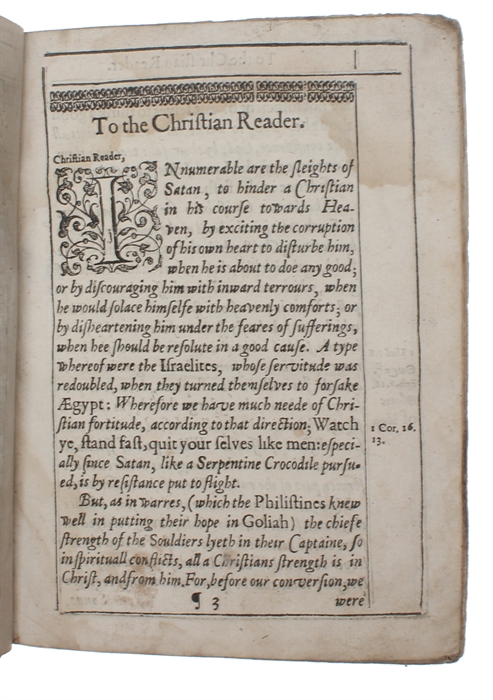 To the Chriſtian Reader.
Chriſtian Reader,
INnumerable are the ſleights of
Satan, to hinder a Chriſtian
in his courſe towards Hea-
ven, by exciting the corruption
of his own heart to diſturbe him,
when he is about to doe any good;
or by diſcouraging him with inward terrours, when
he would ſolace himſelfe with heavenly comforts; or
by diſheartening him under the feares of ſufferings,
when hee ſhould be reſolute in a good cauſe. A type
whereof were the Iſraelites, whoſe ſervitude was
redoubled, when they turned themſelves to forſake
Ægypt: Wherefore we have much neede of Chri-
ſtian fortitude, according to that direction; Watch
ye, ſtand faſt, quit your ſelves like men: eſpeci-
ally ſince Satan, like a Serpentine Crocodile purſu-
ed, is by reſiſtance put to flight.
1 Cor. 16.
13.
But, as in warres, (which the Philiſtines knew
well in putting their hope in Goliah) the chiefe
ſtrength of the Souldiers lyeth in their Captaine, ſo
in ſpirituall conflicts, all a Chriſtians ſtrength is in
Chriſt, and from him. For, before our converſion, we
¶ 3 were